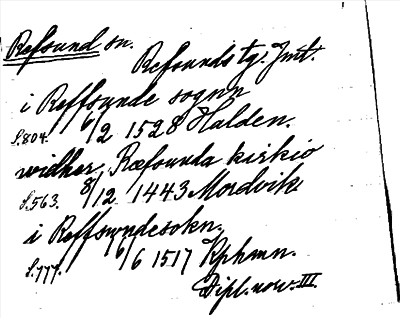 Refsund sn.
Refsunds tg. Jmt.
i Reffsunde sognn
S. 804. 6/2 1528 Halden.
widher, Ræfsunda kirkio
S. 563. 8/12 1443 Mordvik
i Reffswndesokn.
S. 777. 6/6 1517 Kphamn.
Dipl. norv. III.